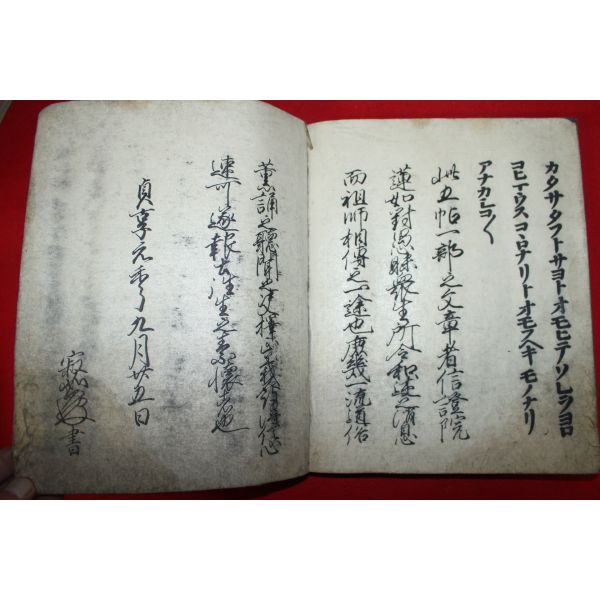 カタサタフトサヨトオモヒテソレヲヨロ
コヒマウスコヽロナリトオモフヘキモノナリ
アナカシコ〱
此五帖一部之文章者信證院
蓮如對愚昧衆生所令和述之消息
而祖師相傳之一途也庶幾一流道俗
薫誦之聽聞之決擇
速可遂報土往生之素懷者也
貞享元 九月廿五日
寂如 書